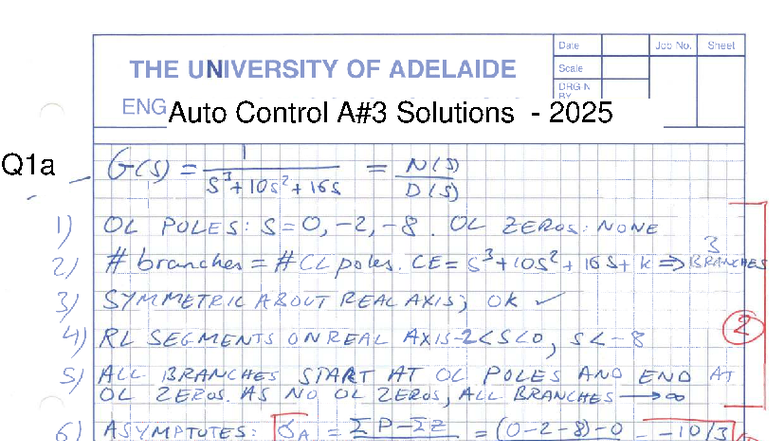 THE UNIVERSITY OF ADELAIDE
Date
Job No.
Sheet
Scale
DRG N
BY
ENG
Auto Control A#3 Solutions - 2025
Q1a
G(s) = 1 / S³+10s²+16s = N(S) / D(S)
1) OL POLES: S=0, -2, -8. OL ZEROS: NONE
2) # branches = # CL poles. CE = S³+10S²+16S+K ⇒ 3 BRANCHES
3) SYMMETRIC ABOUT REAL AXIS; OK ✓
4) RL SEGMENTS ON REAL AXIS -2<S<0, S<-8
②
5) ALL BRANCHES START AT OL POLES AND END AT
OL ZEROS. AS NO OL ZEROS, ALL BRANCHES → ∞
6) ASYMPTUTES: σA = ΣP-ΣZ = (0-2-8)-0 = -10/3